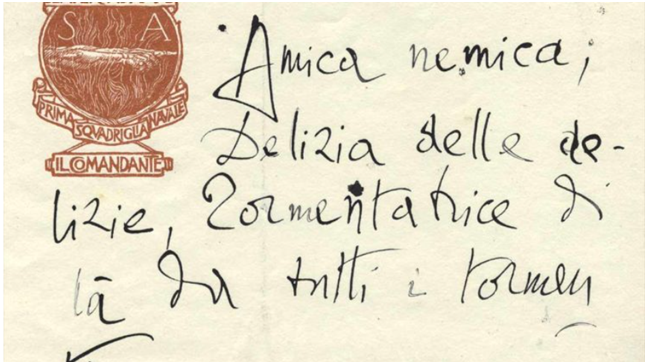 S A
PRIMA SQUADRIGLIA NAVALE
IL COMANDANTE
Amica nemica,
Delizia delle de-
lizie, Tormentatrice di
là da tutti i tormen